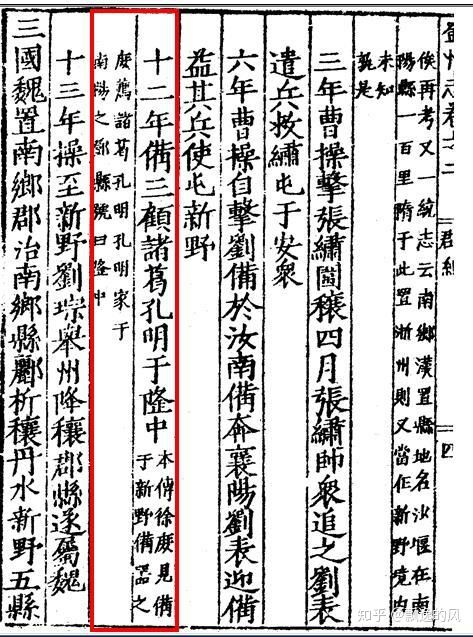 鄧州志卷之二 郡紀 四
侯再考又一統志云南鄉漢置縣地名沙堰在南
陽縣一百里隋于此置淅州則又當在新野境内
未知
孰是
三年曹操擊張繡圍穰四月張繡帥衆追之劉表
遣兵救繡屯于安衆
六年曹操自擊劉備於汝南備奔襄陽劉表迎備
益其兵使屯新野
十二年備三顧諸葛孔明于隆中
本傳徐庶見備
于新野備器之
庶薦諸葛孔明孔明家于
南陽之鄧縣號曰隆中
十三年操至新野劉琮舉州降穰郡縣遂屬魏
三國魏置南鄉郡治南鄉縣酈析穰丹水新野五縣
知乎 @飘逸的风